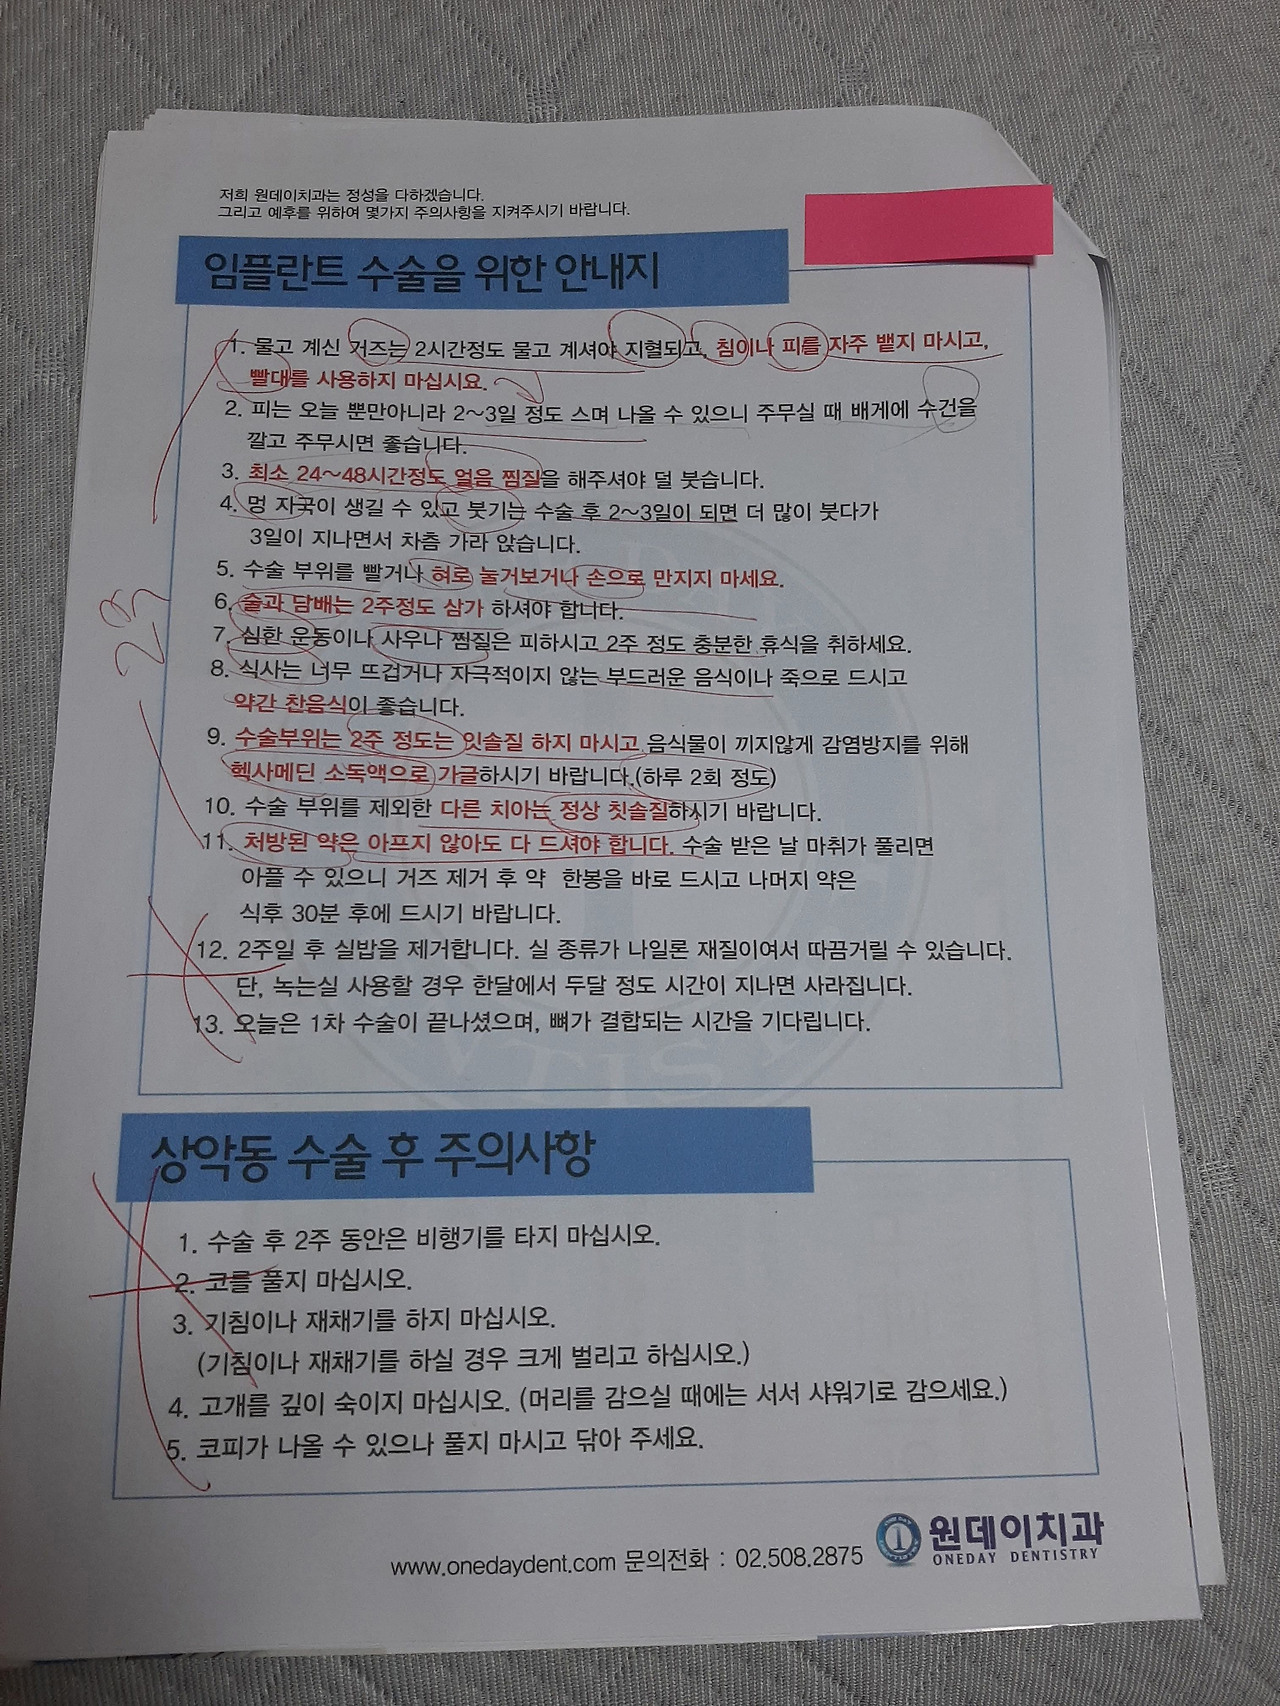 저희 원데이치과는 정성을 다하겠습니다.
그리고 예후를 위하여 몇가지 주의사항을 지켜주시기 바랍니다.
임플란트 수술을 위한 안내지
1. 물고 계신 거즈는 2시간정도 물고 계셔야 지혈되고, 침이나 피를 자주 뱉지 마시고,
빨대를 사용하지 마십시요.
2. 피는 오늘 뿐만아니라 2~3일 정도 스며 나올 수 있으니 주무실 때 배게에 수건을
깔고 주무시면 좋습니다.
3. 최소 24~48시간정도 얼음 찜질을 해주셔야 덜 붓습니다.
4. 멍 자국이 생길 수 있고 붓기는 수술 후 2~3일이 되면 더 많이 붓다가
3일이 지나면서 차츰 가라 앉습니다.
5. 수술 부위를 빨거나 혀로 눌거보거나 손으로 만지지 마세요.
6. 술과 담배는 2주정도 삼가 하셔야 합니다.
7. 심한 운동이나 사우나 찜질은 피하시고 2주 정도 충분한 휴식을 취하세요.
2주
8. 식사는 너무 뜨겁거나 자극적이지 않는 부드러운 음식이나 죽으로 드시고
약간 찬음식이 좋습니다.
9. 수술부위는 2주 정도는 잇솔질 하지 마시고 음식물이 끼지않게 감염방지를 위해
헥사메딘 소독액으로 가글하시기 바랍니다.(하루 2회 정도)
10. 수술 부위를 제외한 다른 치아는 정상 칫솔질하시기 바랍니다.
11. 처방된 약은 아프지 않아도 다 드셔야 합니다. 수술 받은 날 마취가 풀리면
아플 수 있으니 거즈 제거 후 약 한봉을 바로 드시고 나머지 약은
식후 30분 후에 드시기 바랍니다.
12. 2주일 후 실밥을 제거합니다. 실 종류가 나일론 재질이여서 따끔거릴 수 있습니다.
단, 녹는실 사용할 경우 한달에서 두달 정도 시간이 지나면 사라집니다.
13. 오늘은 1차 수술이 끝나셨으며, 뼈가 결합되는 시간을 기다립니다.
상악동 수술 후 주의사항
1. 수술 후 2주 동안은 비행기를 타지 마십시오.
2. 코를 풀지 마십시오.
3. 기침이나 재채기를 하지 마십시오.
(기침이나 재채기를 하실 경우 크게 벌리고 하십시오.)
4. 고개를 깊이 숙이지 마십시오. (머리를 감으실 때에는 서서 샤워기로 감으세요.)
5. 코피가 나올 수 있으나 풀지 마시고 닦아 주세요.
www.onedaydent.com 문의전화 : 02.508.2875 원데이치과
ONEDAY DENTISTRY